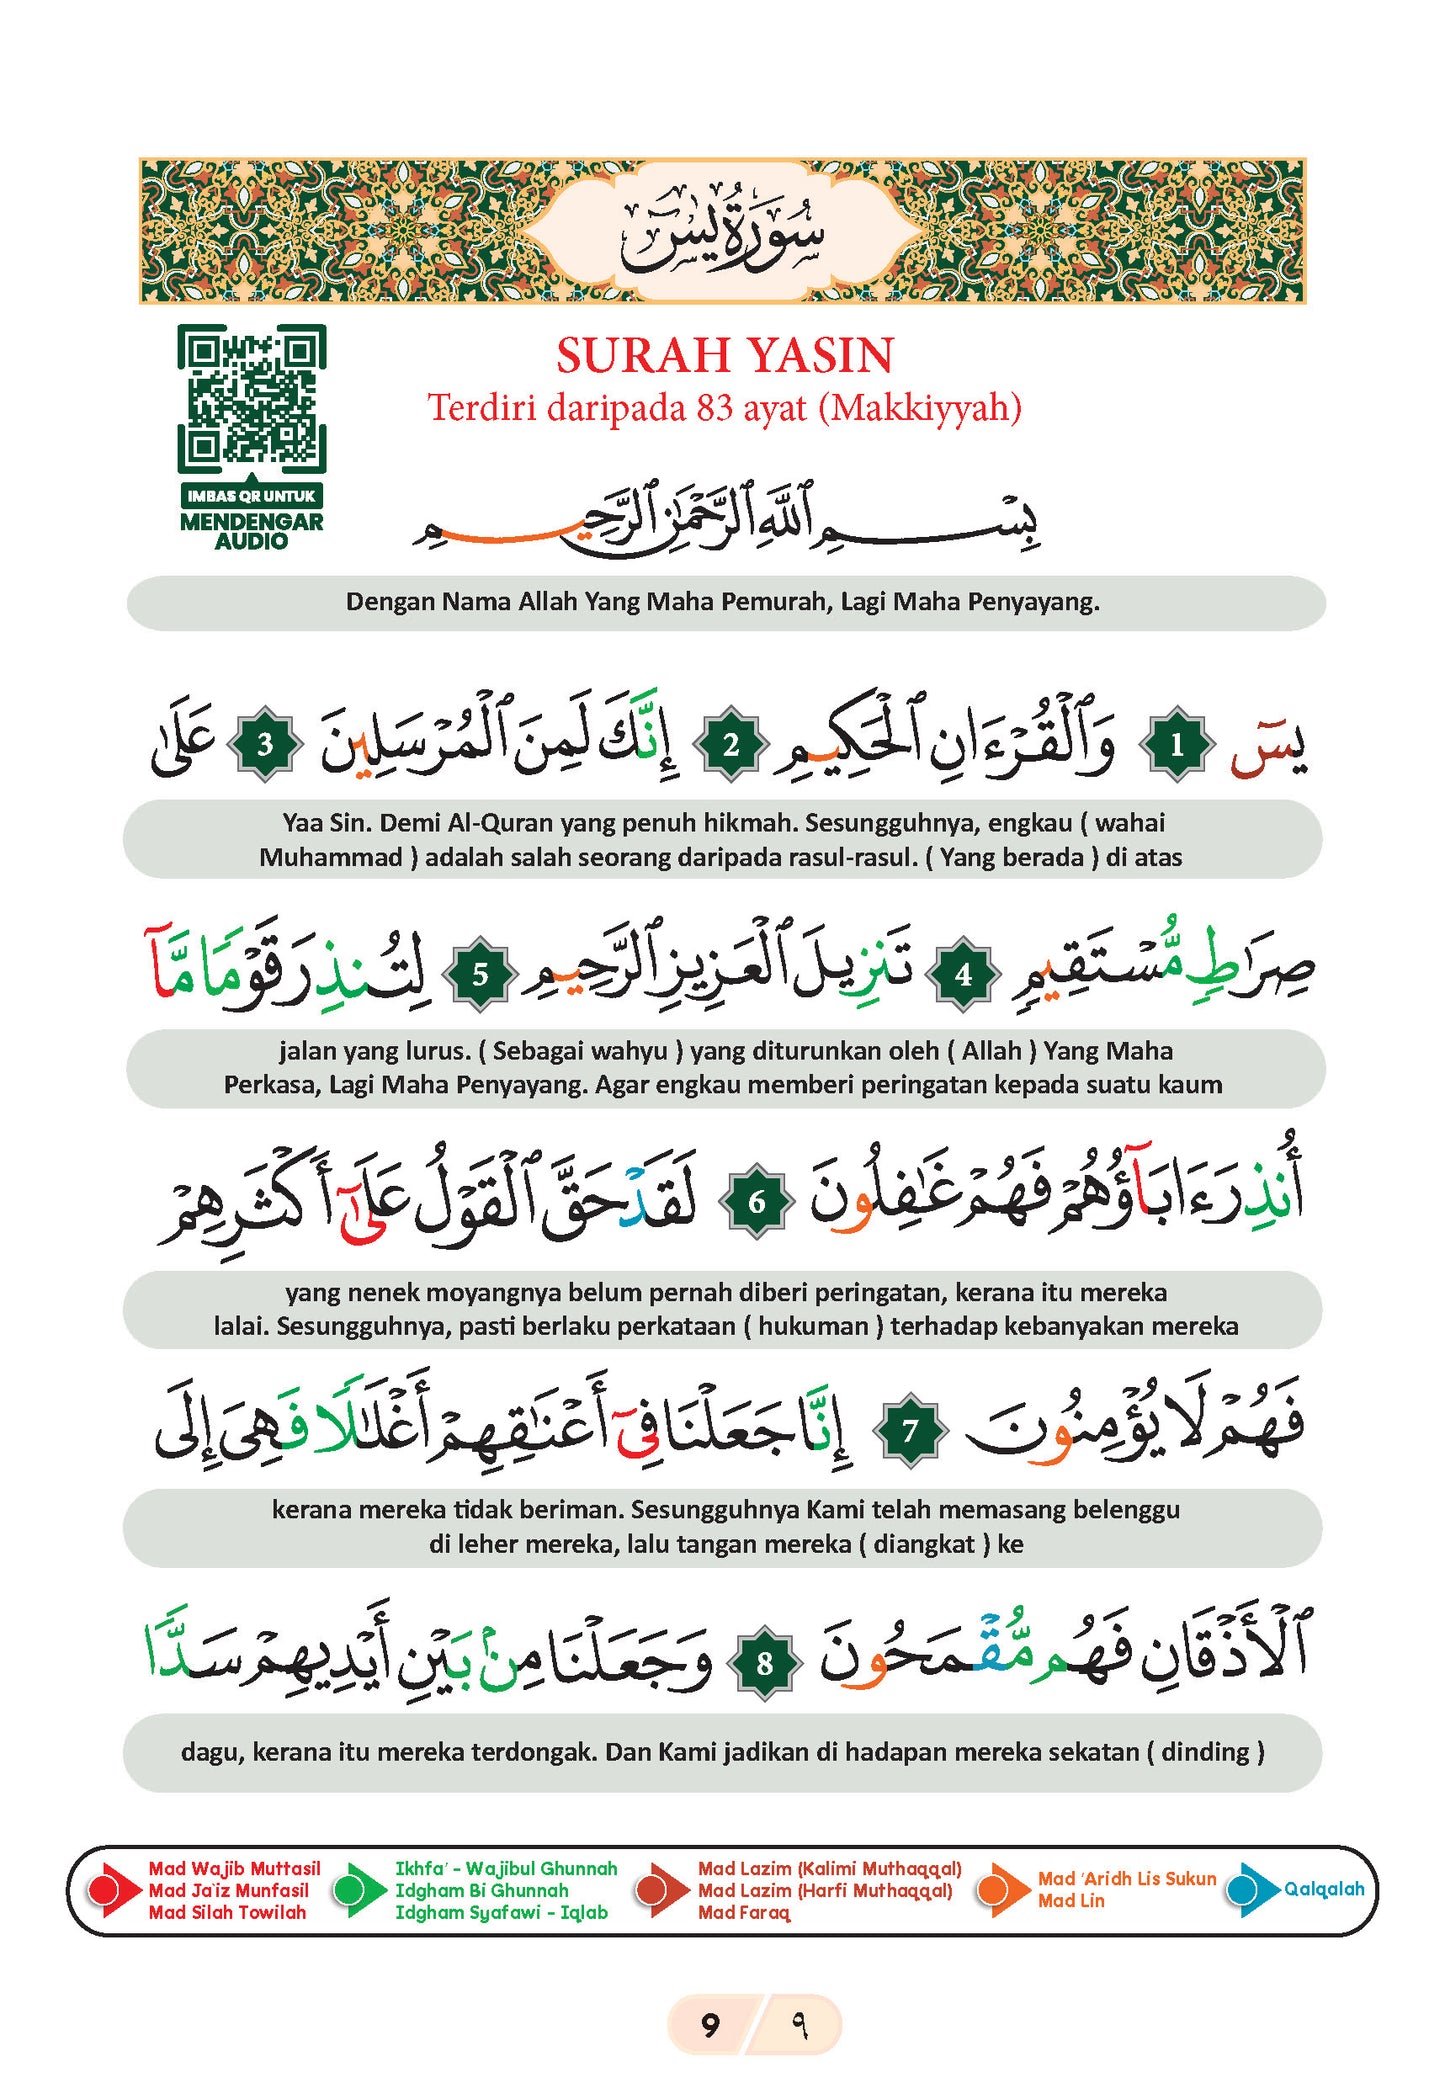 سُورَةُ يسٓ
SURAH YASIN
Terdiri daripada 83 ayat (Makkiyyah)
IMBAS QR UNTUK
MENDENGAR
AUDIO
بِسْمِ ٱللَّهِ ٱلرَّحْمَٰنِ ٱلرَّحِيمِ
Dengan Nama Allah Yang Maha Pemurah, Lagi Maha Penyayang.
يسٓ 1 وَٱلْقُرْءَانِ ٱلْحَكِيمِ 2 إِنَّكَ لَمِنَ ٱلْمُرْسَلِينَ 3 عَلَىٰ
Yaa Sin. Demi Al-Quran yang penuh hikmah. Sesungguhnya, engkau ( wahai
Muhammad ) adalah salah seorang daripada rasul-rasul. ( Yang berada ) di atas
صِرَٰطٍ مُّسْتَقِيمٍ 4 تَنزِيلَ ٱلْعَزِيزِ ٱلرَّحِيمِ 5 لِتُنذِرَ قَوْمًا مَّآ
jalan yang lurus. ( Sebagai wahyu ) yang diturunkan oleh ( Allah ) Yang Maha
Perkasa, Lagi Maha Penyayang. Agar engkau memberi peringatan kepada suatu kaum
أُنذِرَ ءَابَآؤُهُمْ فَهُمْ غَٰفِلُونَ 6 لَقَدْ حَقَّ ٱلْقَوْلُ عَلَىٰٓ أَكْثَرِهِمْ
yang nenek moyangnya belum pernah diberi peringatan, kerana itu mereka
lalai. Sesungguhnya, pasti berlaku perkataan ( hukuman ) terhadap kebanyakan mereka
فَهُمْ لَا يُؤْمِنُونَ 7 إِنَّا جَعَلْنَا فِىٓ أَعْنَٰقِهِمْ أَغْلَٰلًا فَهِىَ إِلَى
kerana mereka tidak beriman. Sesungguhnya Kami telah memasang belenggu
di leher mereka, lalu tangan mereka ( diangkat ) ke
ٱلْأَذْقَانِ فَهُم مُّقْمَحُونَ 8 وَجَعَلْنَا مِنۢ بَيْنِ أَيْدِيهِمْ سَدًّا
dagu, kerana itu mereka terdongak. Dan Kami jadikan di hadapan mereka sekatan ( dinding )
Mad Wajib Muttasil
Mad Ja`iz Munfasil
Mad Silah Towilah
Ikhfa' - Wajibul Ghunnah
Idgham Bi Ghunnah
Idgham Syafawi - Iqlab
Mad Lazim (Kalimi Muthaqqal)
Mad Lazim (Harfi Muthaqqal)
Mad Faraq
Mad 'Aridh Lis Sukun
Mad Lin
Qalqalah
9 ٩